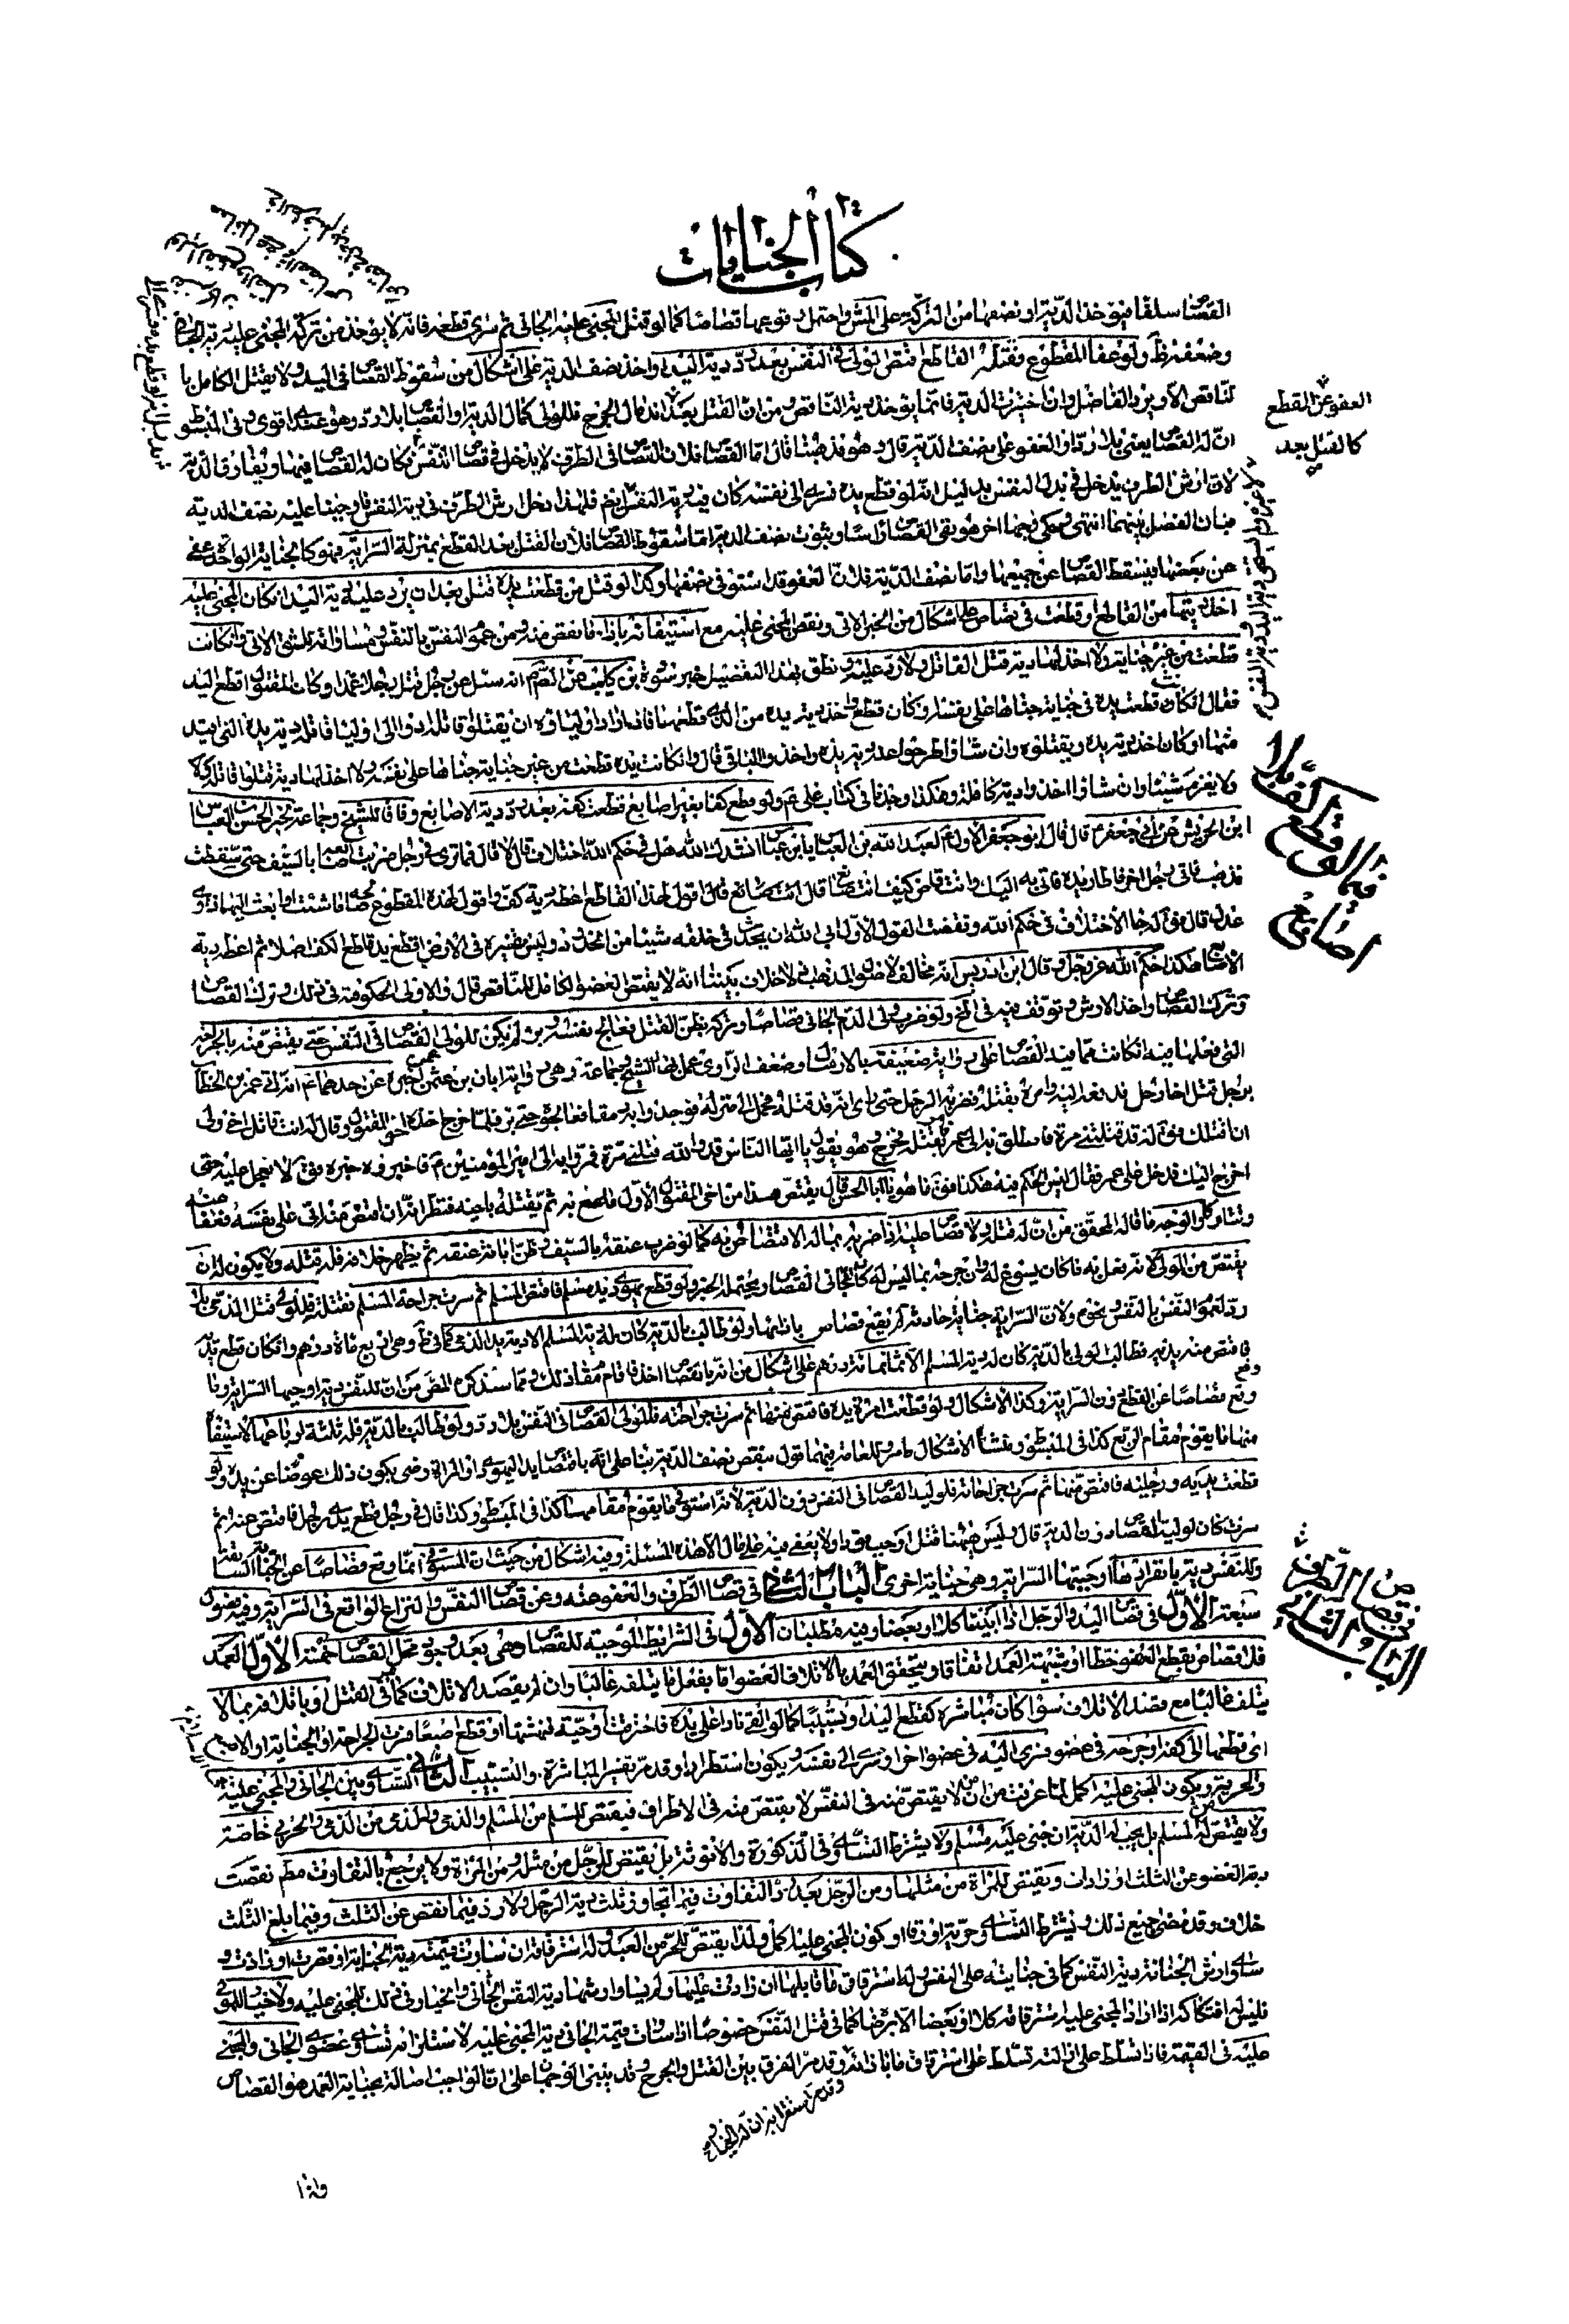 كتاب الجنايات
القصاص سلفا فيؤخذ الدية او نصفها من التركة على المش واحتمل وقوعها قصاصا كما لو قتل المجنى عليه الجانى ثم سرى قطعه فانه لا يؤخذ من تركة المجنى عليه دية الجانى
وضعفه ظ ولو عفا المقطوع فقتله القاطع اقتص الولى فى النفس بعد رد دية اليد واخذ نصف الدية على اشكال من سقوط القصاص فى اليد ولا يقتل الكامل با
لناقص الا ويرد الفاضل وان اختيرت الدية فانما يؤخذ دية الناقص ومن ان القتل بعد اندمال الجرح فللولى كمال الدية او القصاص بلا رد وهو عندى اقوى وفى المبسوط
ان له القصاص يعنى بلا رد او العفو على نصف الدية قال وهو مذهبنا قال اما القصاص فلان القصاص فى الطرف لا يدخل فى قصاص النفس فكان له القصاص فيها ويفارق الدية
لان ارش الطرف يدخل فى بدل النفس بدليل انه لو قطع يده فسرى الى نفسه كان فيه دية النفس ايضم فلهذا دخل ارش الطرف فى دية النفس فاوجبنا عليه نصف الدية
فبان الفصل بينهما انتهى وحكى وجها اخر هو بقى القصاص راسا وثبوت نصف الدية اما سقوط القصاص فلان القتل بعد القطع بمنزلة السراية فهو كالجناية الواحدة عفى
عن بعضها فيسقط القصاص عن جميعها واما نصف الدية فلان العفو قد استوفى نصفها وكذا لو قتل من قطعت يده قتل بعد ان يرد عليه دية اليد ان كان المجنى عليه
اخذ ديتها من القاطع او قطعت فى قصاص على اشكال من الخبر الاتى ونقص المجنى عليه مع استيفائه بازاء ما نقص منه ومن عموم النفس بالنفس ومساواته للشق الاتى وان كانت
قطعت من غير جناية ولا اخذ لها دية قتل القاتل ولا رد عليه ونطق بهذا التفصيل خبر سورة بن كليب عن الصم انه سئل عن رجل قتل رجلا عمدا وكان المقتول اقطع اليد
فقال ان كانت قطعت يده فى جناية جناها على نفسه او كان قطع واخذ دية يده من الذى قطعها فان اراد اولياؤه ان يقتلوا قاتله ادوا الى اولياء قاتله دية يده التى قيد
منها او كان اخذ دية يده ويقتلوه وان شاؤا طرحوا عنه دية يده واخذوا الباقى قال وان كانت يده قطعت من غير جناية جناها على نفسه ولا اخذ لها دية قتلوا قاتله ولا
ولا يغرم شيئا وان شاؤا اخذوا دية كاملة وهكذا وجدنا فى كتاب على عم ولو قطع كفا بغير اصابع قطعت كفه بعد رد دية الاصابع وفاقا للشيخ وجماعة لخبر الحسن بن العباس
ابن الحريش عن ابى جعفر م قال قال ابو جعفر الاول م لعبد الله بن العباس يا ابن عباس انشدك الله هل فى حكم الله اختلاف قال لا قال فما ترى فى رجل ضربت اصابعه بالسيف حتى سقطت
فذهب فاتى رجل اخر فاطار يده فاتى به اليك وانت قاض كيف انت صانع قال اقول لهذا القاطع اعطه دية كف واقول لهذا المقطوع صالحه ما شئت او ابعث اليهما ذوى
عدل قال فق له جا الاختلاف فى حكم الله ونقضت القول الاول ابى الله ان يحدث فى خلقه شيئا من الحدود وليس تفسيره فى الارض اقطع يد قاطع الكف اصلا ثم اعطه دية
الاصابع هكذا حكم الله عز وجل وقال ابن ادريس انه مخالف لاصول المذهب لا خلاف بيننا انه لا يقتص العضو الكامل للناقص قال والاولى الحكومة فى ذلك وترك القصاص
وترك القصاص واخذ الارش وتوقف فيه فى لح ولو ضرب ولى الدم الجانى قصاصا وتركه بظن القتل فعالج نفسه وبرئ لم يكن للولى القصاص فى النفس حتى يقتص منه بالجراحة
التى فعلها فيه ان كانت مما فيه القصاص على رواية ضعيفة بالارسال وضعف الراوى عمل بها الشيخ وجماعة وهى رواية ابان بن عثمن عمن اخبره عن احدهما م انه اتى عمر بن الخطاب
برجل قتل اخا رجل فدفعه اليه وامره بقتله فضربه الرجل حتى راى انه قد قتله فحمل الى منزله فوجدوا به رمقا فعالجوه حتى برئ فلما خرج اخذه اخو المقتول وقال له انت قاتل اخى ولى
ان اقتلك فق له قد قتلتنى مرة فانطلق به الى عمر فامر بقتله فخرج وهو يقول يا ايها الناس قد والله قتلنى مرة فمروا به الى امير المؤمنين م فاخبروه خبره فق لا تعجل عليه حتى
اخرج اليك فدخل على عمر فقال ليس الحكم فيه هكذا فق ما هو يا ابا الحسن قال يقتص هذا من اخى المقتول الاول ما صنع به ثم يقتله باخيه فنظر انه ان اقتص منه اتى على نفسه فعفا عنه
وتتاركا والوجه ما قاله المحقق من ان له قتله ولا قصاص عليه اذا ضربه بما له الاقتصاص به كما لو ضرب عنقه بالسيف وظن ابانة عنقه ثم يظهر خلافه فله قتله ولا يكون له ان
يقتص من الولى لانه فعل به ما كان يسوغ له وان جرحه بما ليس له كان للجانى القصاص ويحتمله الخبر ولو قطع يهودى يد مسلم فاقتص المسلم ثم سرت جراحة المسلم فقتلته فللولى قتل الذمى بلا
رد لعموم النفس بالنفس ونحوه ولان السراية جناية حادثة لم يقع قصاص بازائها ولو طالب بالدية كان له دية المسلم الا دية يد الذمى كما فى ط وهى اربع مائة درهم وان كان قطع يديه
فاقتص منه يديه فطالب الولى بالدية كان له دية المسلم الا ثمانمائة درهم على اشكال من انه باقتصاص اخذ ما قام مقام ذلك ومما سنذكره المص من ان للنفس دية اوجبها السراية وما
وقع
وقع قصاصا عن القطع دون السراية وكذا الاشكال ولو قطعت امراة يده فاقتص منها ثم سرت جراحته فللولى القصاص فى النفس بلا رد ولو طالب بالدية فله ثلثة ارباعها لاستيفائه
منها ما يقوم مقام الربع كذا فى المبسوط ومنشأ الاشكال ما مر وللعامة فيهما قول بنقص نصف الدية بناء على انه باقتصاص يد اليهودى او المراة رضى بكون ذلك عوضا عن يده ولو
قطعت يديه ورجليه فاقتص منها ثم سرت جراحاته فلوليه القصاص فى النفس دون الدية لانه استوفى ما يقوم مقامها كذا فى المبسوط وكذا قال فى رجل قطع يدى رجل فاقتص منه ثم
سرت كان لوليه القصاص دون الدية قال وليس هيهنا قتل اوجب قودا ولا يعفى فيه على مال الا هذه المسئلة وفيه اشكال من حيث ان المستوفى انما وقع قصاصا عن الجناية السابقة
وللنفس دية بانفرادها اوجبتها السراية وهى جناية اخرى الباب الثانى فى قصاص الطرف والعفو عنه وعن قصاص النفس والنزاع الواقع فى السراية وفيه فصول
سبعة الاول فى قصاص اليد والرجل اذا ابينتا كلا او بعضا وفيه مطلبان الاول فى الشرايط الموجبة للقصاص وهى بعد وجود محل القصاص خمسة الاول العمد
فلا قصاص بقطع العضو خطا او شبيه العمد اتفاقا ويتحقق العمد بالاتلاف العضو اما بفعل ما يتلفه غالبا وان لم يقصد الاتلاف كما فى القتل او باتلافه بما لا
يتلف غالبا مع قصد الاتلاف سواء كان مباشرة كقطع اليد او تسبيبا كما لو القى نارا على يده فاحترقت او حية فنهشتها او قطع اصبعا فسرت الجراحة او الجناية او الاصبع
اى قطعها الى كفه او جرحه فى عضو فسرى اليه فى عضو اخر او سرى الى نفسه ويكون استطرادا وقد مر تفسير المباشرة والتسبيب الثانى التساوى بين الجانى والمجنى عليه
والحرية ويكون المجنى عليه اكمل لما عرفت من ان من لا يقتص منه فى النفس لا يقتص منه فى الاطراف فيقتص للمسلم من المسلم والذمى وللذمى من الذمى والحربى خاصة
ولا يقتص له من المسلم بل يجب له الدية ان جنى عليه مسلم ولا يشترط التساوى فى الذكورة والانوثة بل يقتص للرجل من مثله ومن المراة ولا يرجع بالتفاوت مطم نقصت
دية العضو عن الثلث او زادت ويقتص للمراة من مثلها ومن الرجل بعد رد التفاوت فيما تجاوز ثلث دية الرجل ولا رد فيما نقص عن الثلث وفيما بلغ الثلث
خلاف وقد مضى جميع ذلك ويشترط التساوى حرية او رقا او كون المجنى عليه اكمل ولذا يقتص للحر من العبد وله استرقاقه ان ساوت قيمته دية الجناية او قصرت او زادت و
ساوى ارش الجناية دية النفس كما فى جنايته على النفس وله استرقاق ما قابلها ان زادت عليها ولم يساو ارشها دية النفس الجانى والخيار فى ذلك للمجنى عليه ولا خيار للمولى
فليس له افتكاكه اذا اراد المجنى عليه استرقاقه كلا او بعضا الا برضاه كما فى قتل النفس خصوصا اذا ساوت قيمة الجانى دية المجنى عليه لاستلزامه تساوى عضوى الجانى والمجنى
عليه فى القيمة فاذا تسلط على ازالته تسلط على استرقاق ما بازائه وقد مر الفرق بين القتل والجرح وقد يبنى الوجهان على ان الواجب اصالة بجناية العمد هو القصاص
العفو عن القطع
كالقتل بعد
فيما لو قطع كفا بلا
اصابع
الباب الثانى
فى قصاص الطرف
واذا